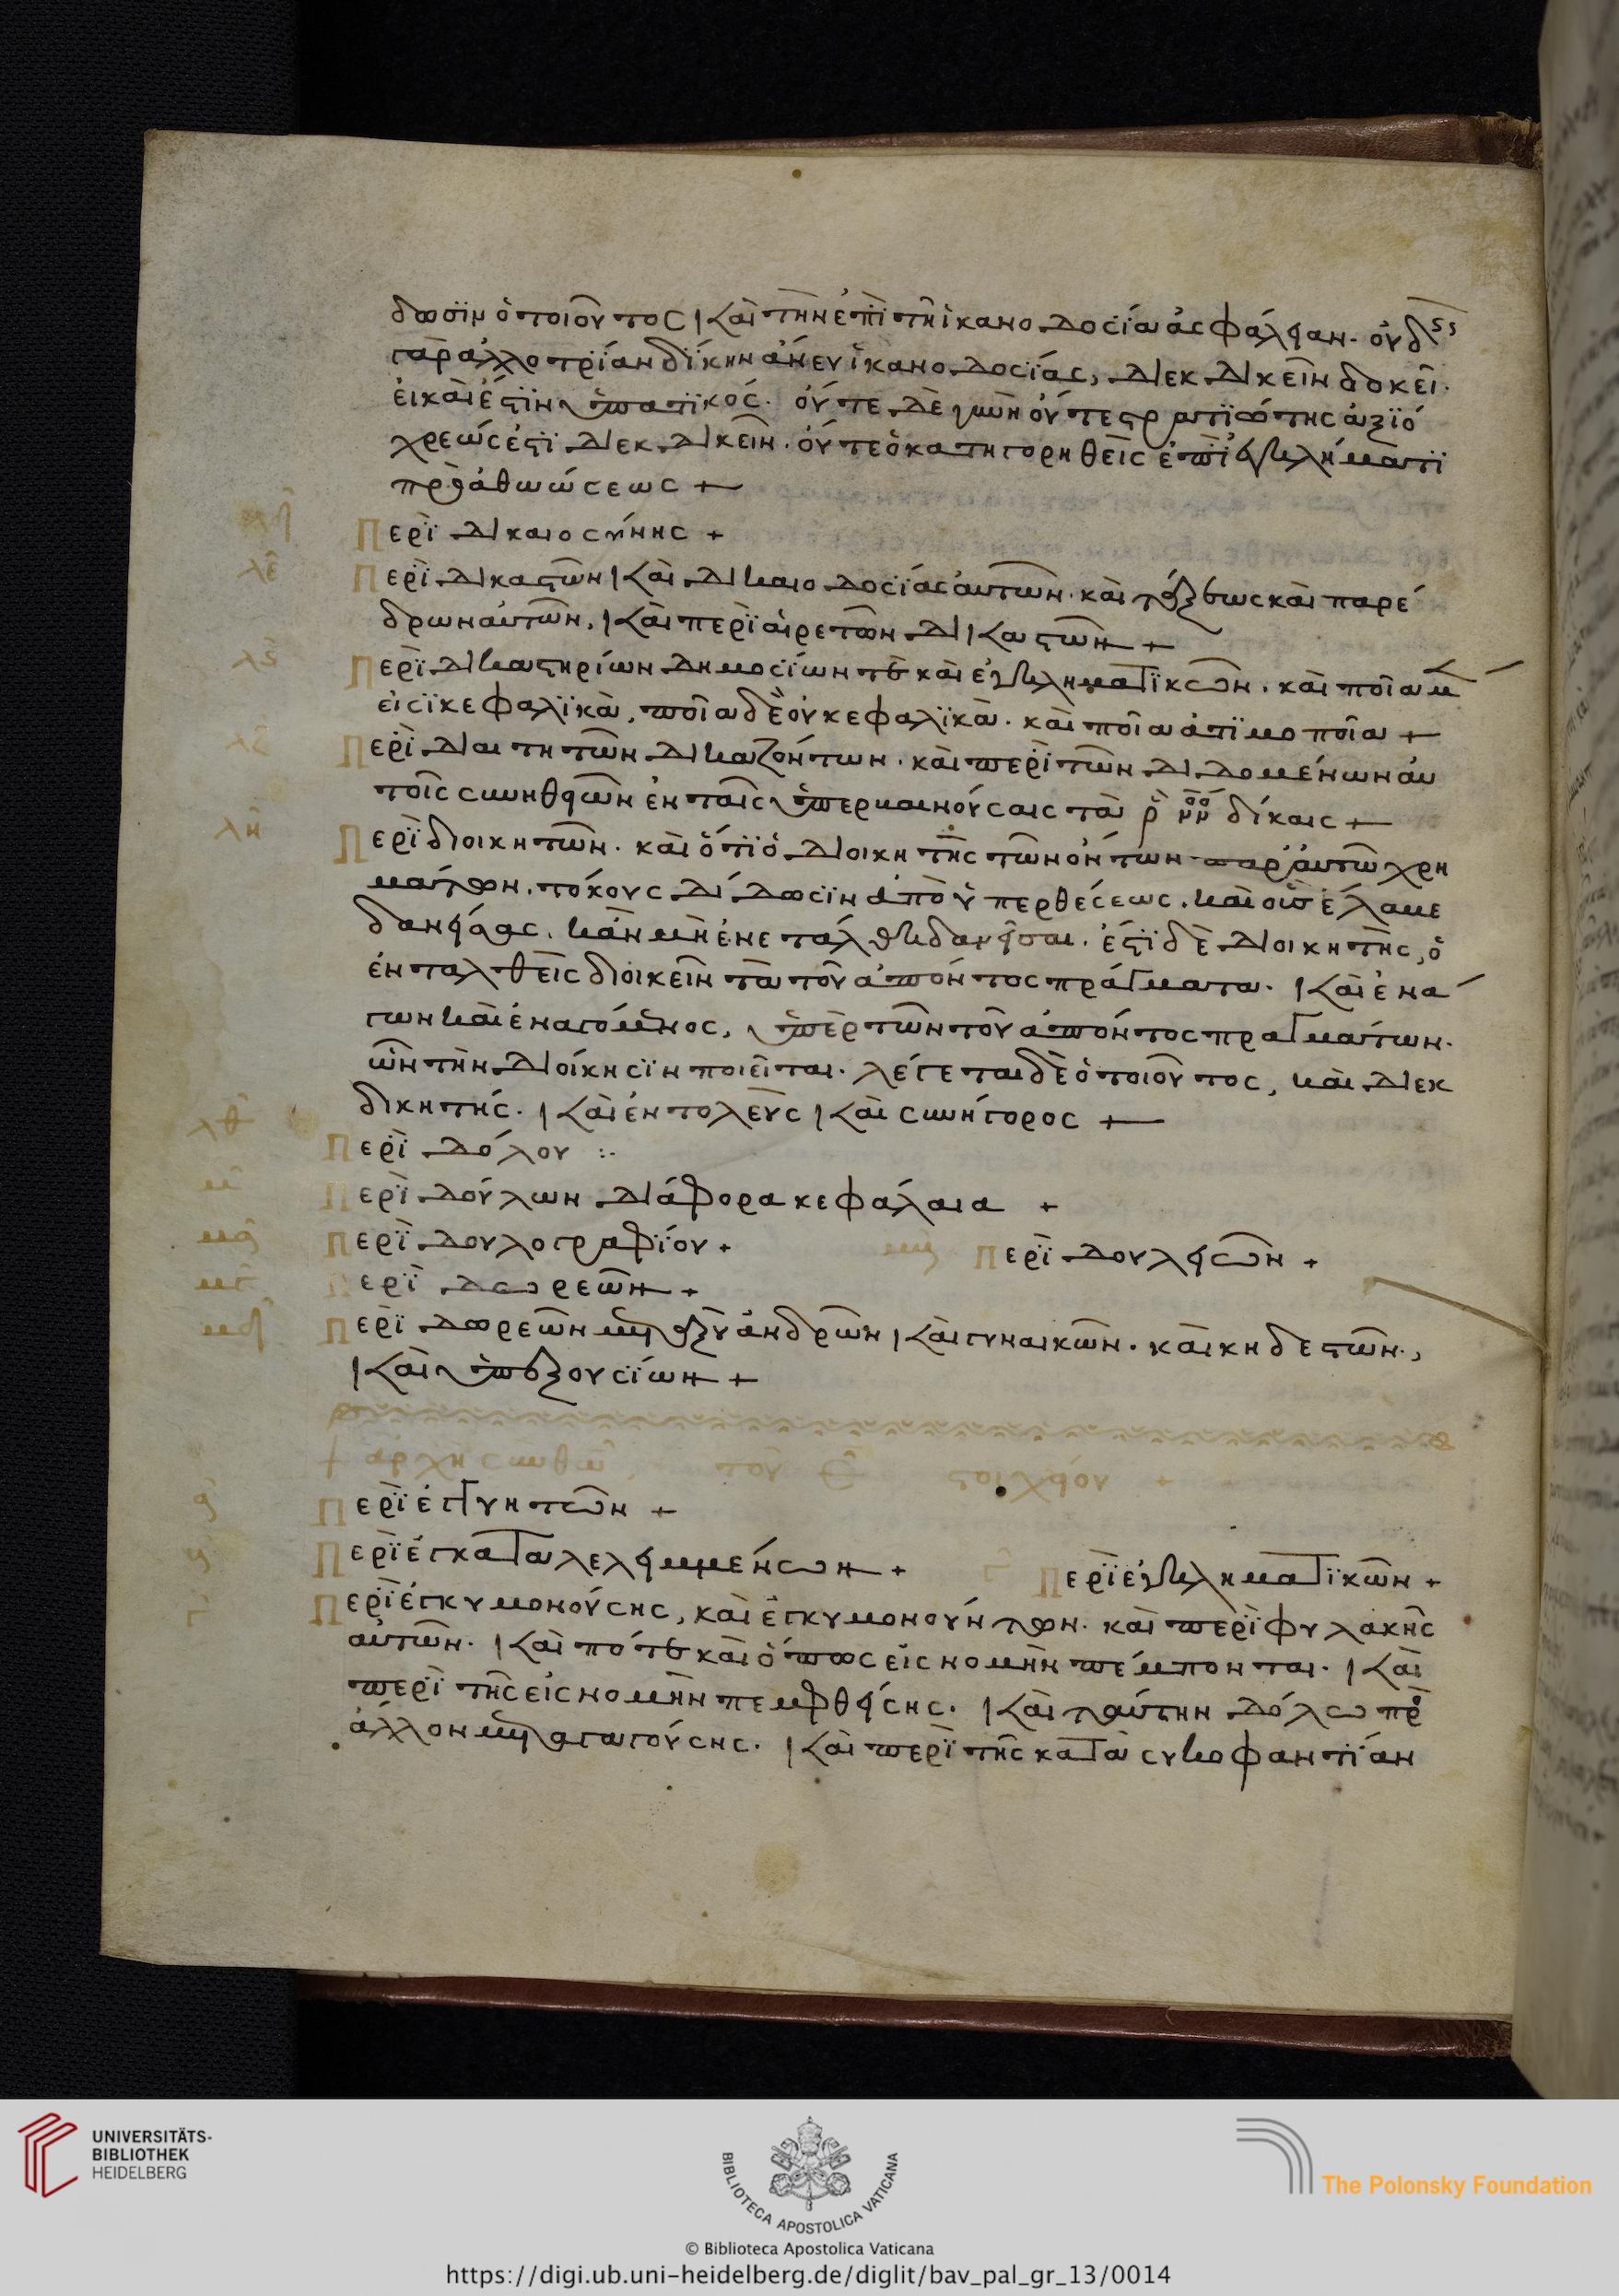 δωσϊν ὁ ποιοῦντος καὶ τὴν ἐπὶ τῆ ἱκανοδοσία ἀσφάλειαν. οὐδεὶς
γὰρ ἀλλοτρίαν δίκην ἄνευ ἱκανοδοσίας, διεκδικεῖν δοκεῖ.
εἰ καὶ ἐστϊν ὑπατικός. οὔτε δὲ γυνὴ οὔτε στρατϊώτης ἀξϊό
χρεώς ἐστϊ διεκδικεῖν. οὔτε ὁ κατηγορηθεὶς ἐπὶ ἐγκλήματι
πρὸ ἀθωώσεως +
λδ Περὶ δικαιοσύνης +
λε Περὶ δικαστῶν καὶ δικαιοδοσίας αὐτῶν. καὶ τάξεως καὶ παρέ
δρων αὐτῶν, καὶ περὶ αἱρετῶν δικαστῶν +
λς Περὶ δικαστηρίων δημοσίων τε καὶ ἐγκληματϊκῶν. καὶ ποῖα μὲν
εἰσϊ κεφαλϊκὰ, ποῖα δὲ οὐ κεφαλϊκά. καὶ ποῖα ἀτϊμοποῖα +
λζ Περὶ διαιτητῶν δικαζόντων. καὶ περὶ τῶν διδομένων αὐ
τοῖς συνηθειῶν ἐν ταῖς ὑπερβαινούσαις τὰ ρ νν δίκαις +
λη Περὶ διοικητῶν. καὶ ὅτϊ ὁ διοικητὴς τῶν ὄντων παρ' αὐτῶ χρη
μάτων. τόκους δίδωσϊν ἀπὸ ὑπερθέσεως. καὶ οὓς ἔλαβε
δανείσας. κἂν μὴ ἐνετάλθη δανεῖσαι. ἔστϊ δὲ διοικητὴς, ὁ
ἐνταλθεὶς διοικεῖν τὰ τοῦ ἀπόντος πράγματα. καὶ ἐνά
γων καὶ ἐναγόμενος, ὑπὲρ τῶν τοῦ ἀπόντος πραγμάτων.
ὧν τὴν διοίκησϊν ποιεῖται. λέγεται δὲ ὁ τοιοῦτος, καὶ διεκ
δικητής. καὶ ἐντολεὺς καὶ συνήγορος +
λθ Περὶ δόλου :·
μ Περὶ δούλων διάφορα κεφάλαια +
μα Περὶ δουλογραφίου + μβ Περὶ δουλειῶν +
μγ Περὶ δωρεῶν +
μδ Περὶ δωρεῶν μεταξὺ ἀνδρῶν καὶ γυναικῶν. καὶ κηδεστῶν.,
καὶ ὑπεξουσίων +
+ ἀρχὴ σὺν θεῶ, τοῦ Ε στοιχείου +
α Περὶ ἐγγυητῶν +
β Περὶ ἐγκαταλελειμμένων + γ Περὶ ἐγκληματϊκῶν +
δ Περὶ ἐγκυμονούσης, καὶ ἐγκυμονούντων. καὶ περὶ φυλακῆς
αὐτῶν. καὶ πότε καὶ ὅπως εἰς νομὴν πέμπονται. καὶ
περὶ τῆς εἰς νομὴν πεμφθείσης. καὶ ταύτην δόλω πρὸς
ἄλλον μεταγαγούσης. καὶ περὶ τῆς κατὰ συκοφαντίαν
UNIVERSITÄTS-
BIBLIOTHEK
HEIDELBERG
BIBLIOTECA APOSTOLICA VATICANA
© Biblioteca Apostolica Vaticana
The Polonsky Foundation
https://digi.ub.uni-heidelberg.de/diglit/bav_pal_gr_13/0014